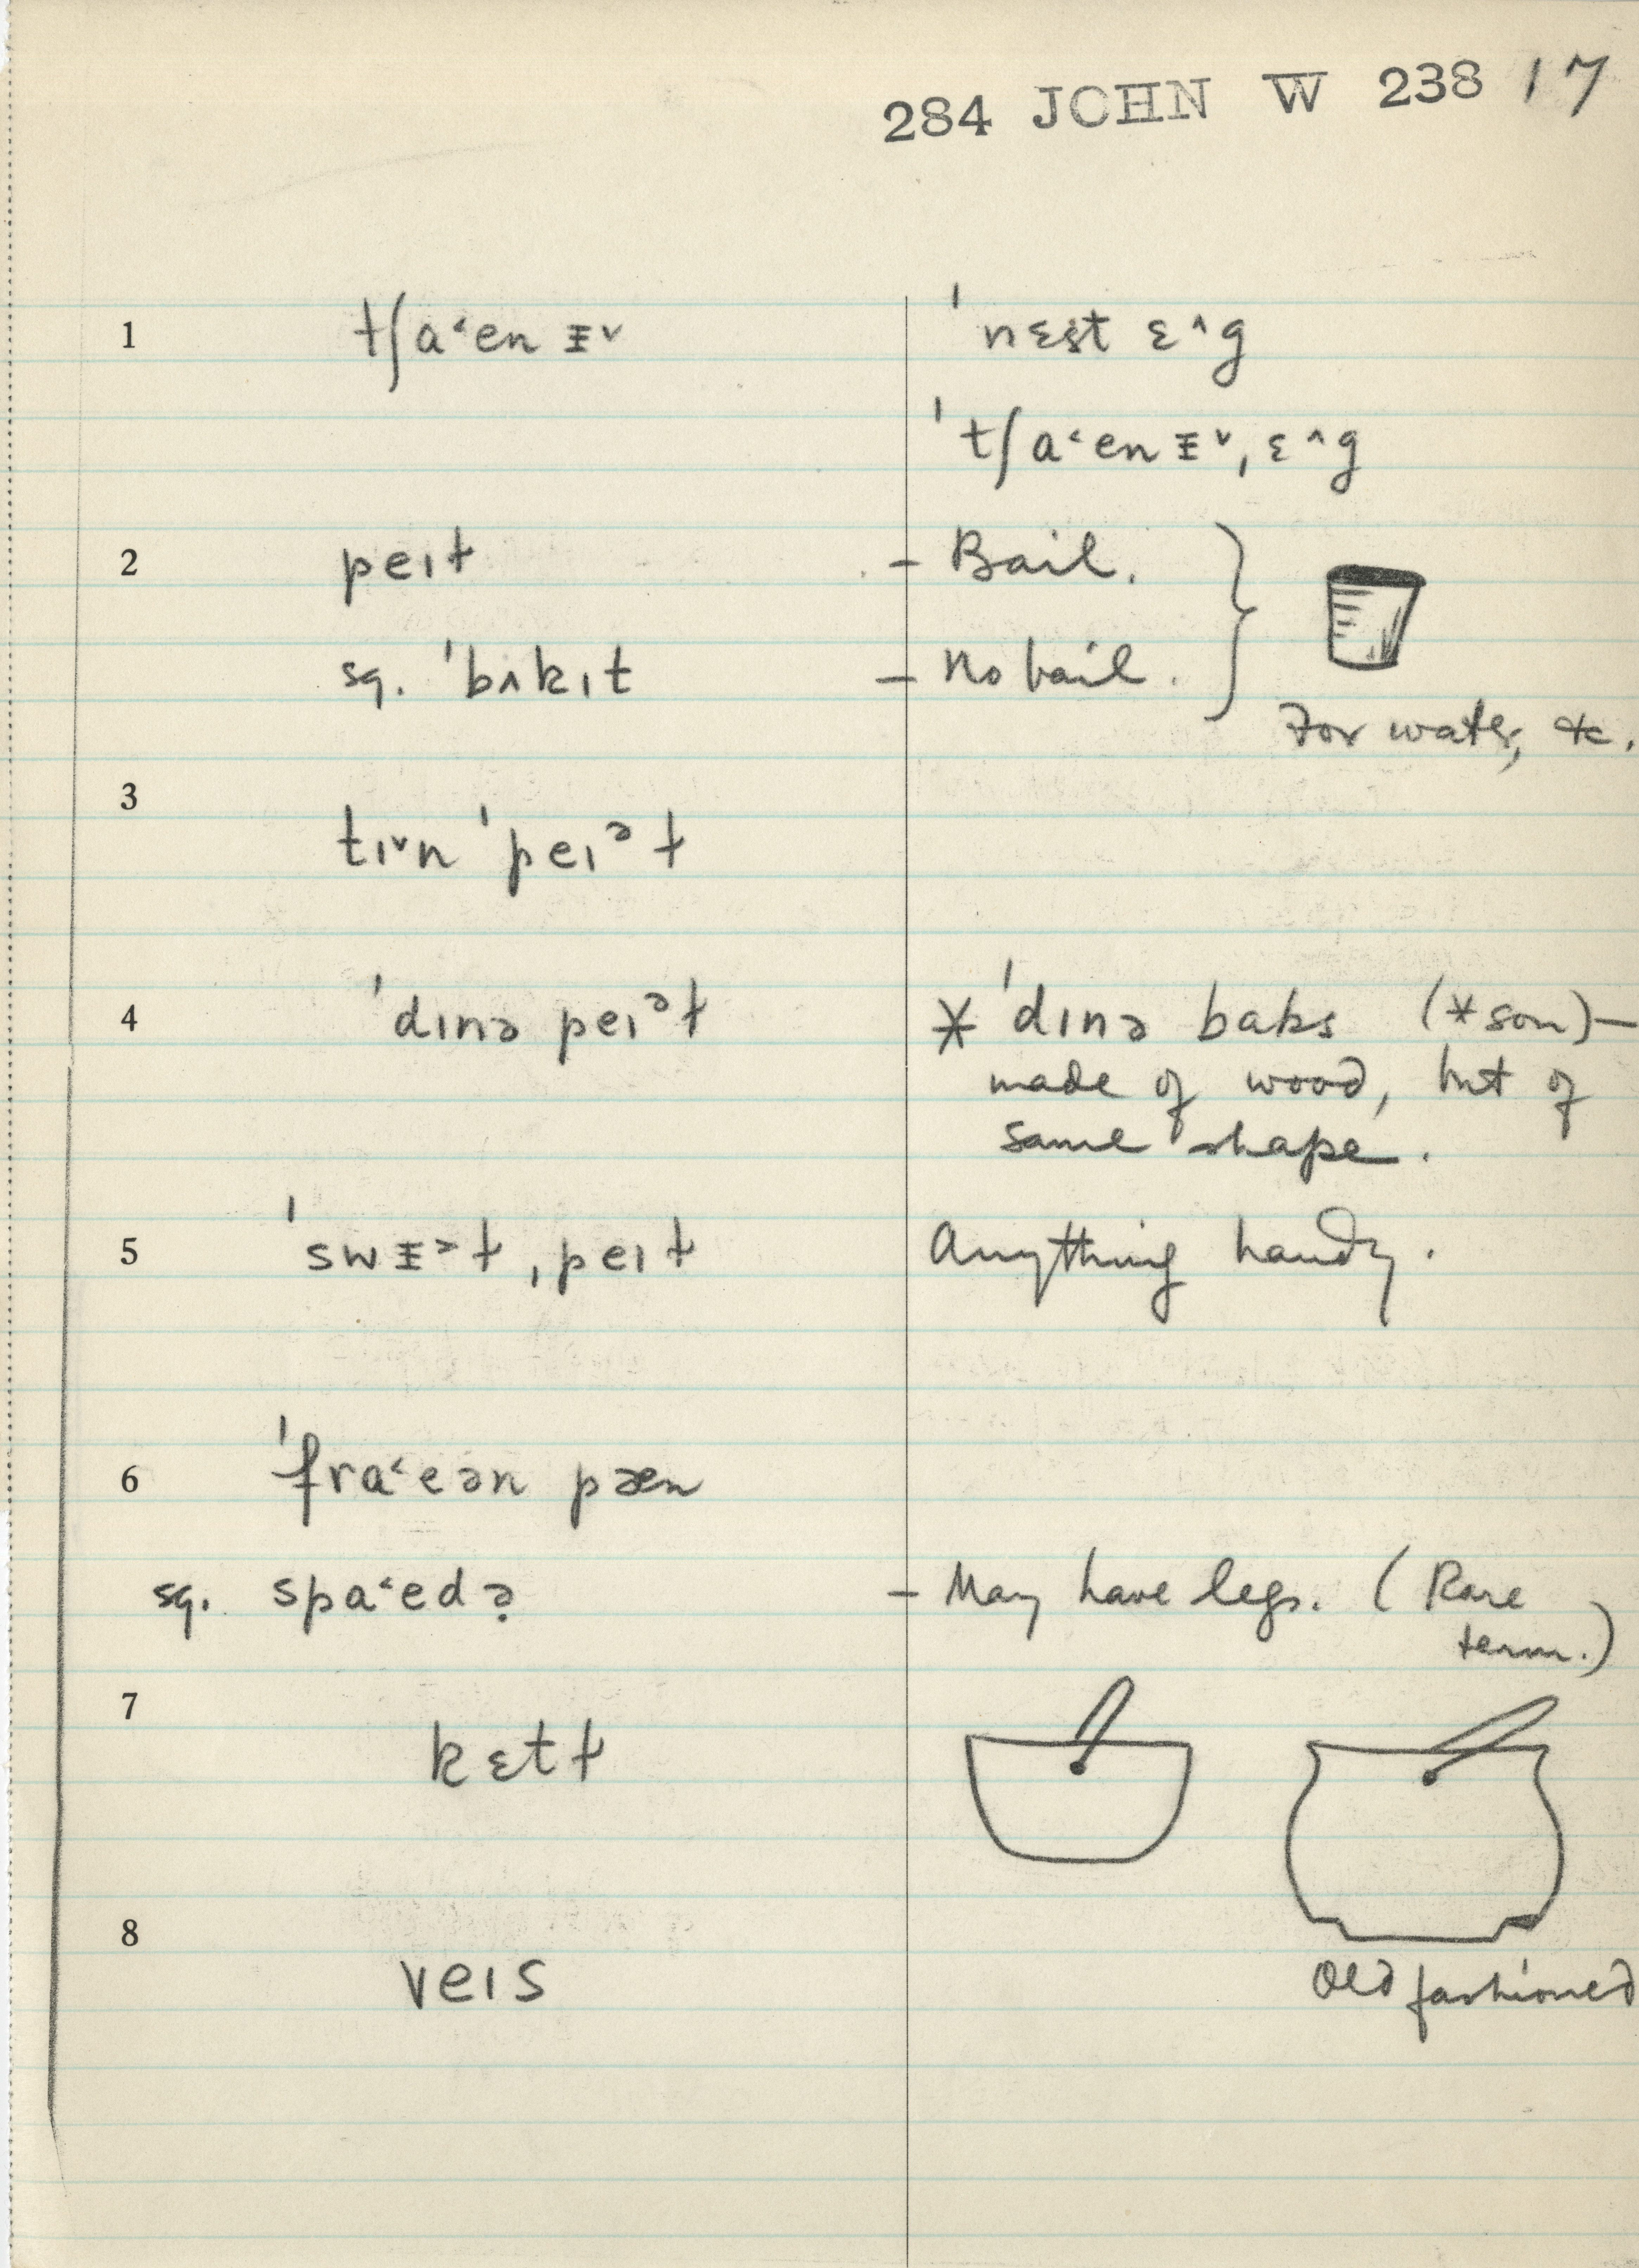 284 JOHN W 238 17
1 tʃa˂en ᵻ˅ ˈnɛst ɛ˄g
ˈtʃa˂enᵻ˅ˌɛ˄g
2 peɪɫ – Bail.
sq. ˈbʌkɪt – No bail.
For water, etc.
3
tɪ˅n ˈpeɪᵊɫ
4 ˈdɪnə peɪᵊɫ * ˈdɪnə baks (*son)—
made of wood, but of
same shape.
5 ˈswᵻ˃ɫˌpeɪɫ Anything handy.
6 ˈfra˂eən pæn
sq. spa˂edə̣ – May have legs. (Rare
term.)
7
kɛtɫ
8
veɪs Old fashioned